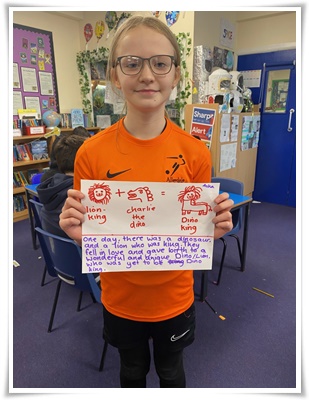 Sharpe
Alert
+ =
lion-king
charlie the dino
Dino king
One day, there was a dinosaur,
and a lion who was king. They
fell in love and gave birth to
wonderful and unique Dino/Lion,
who was yet to be Dino
king.